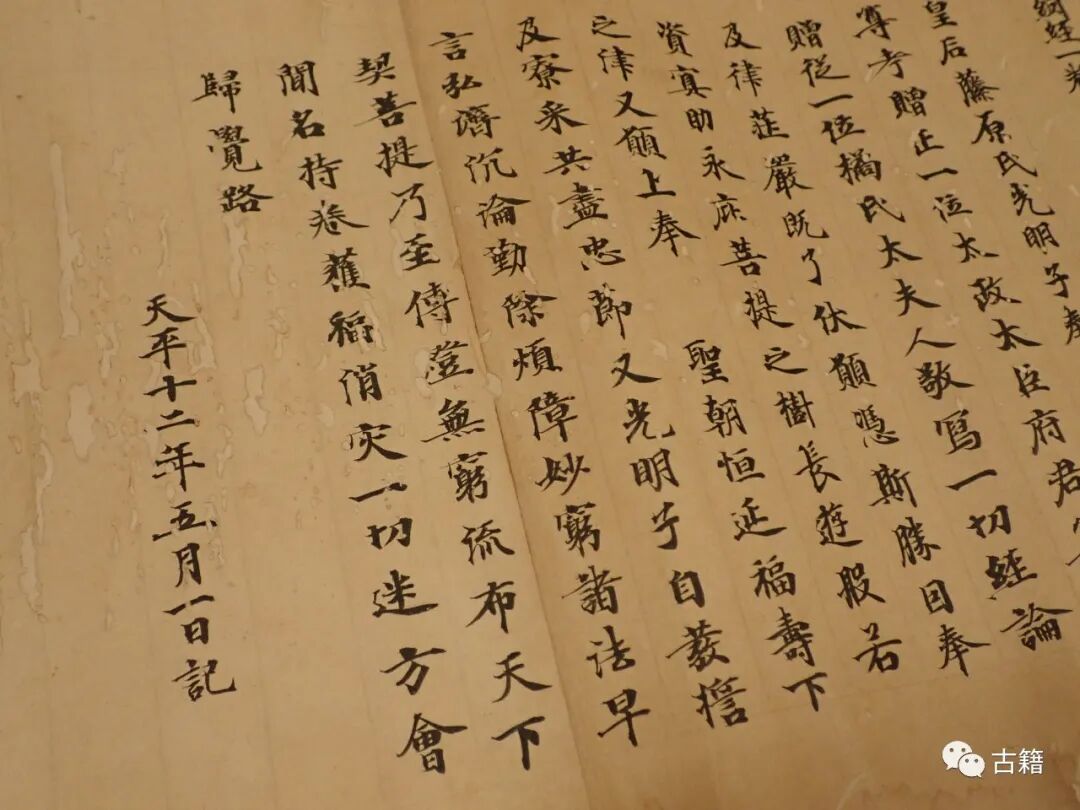 網經一卷
皇后藤原氏光明子奉
尊考贈正一位太政太臣府君
贈従一位橘氏太夫人敬寫一切經論
及律莊嚴既了伏願憑斯勝因奉
資冥助永庇菩提之樹長遊般若
之津又願上奉 聖朝恒延福壽下
及寮采共盡忠節又光明子自發擔
言弘濟沉淪勤除煩障妙窮諸法早
契菩提乃至傳燈無窮流布天下
聞名持卷獲福消灾一切迷方會
歸覺路
天平十二年五月一日記
古籍